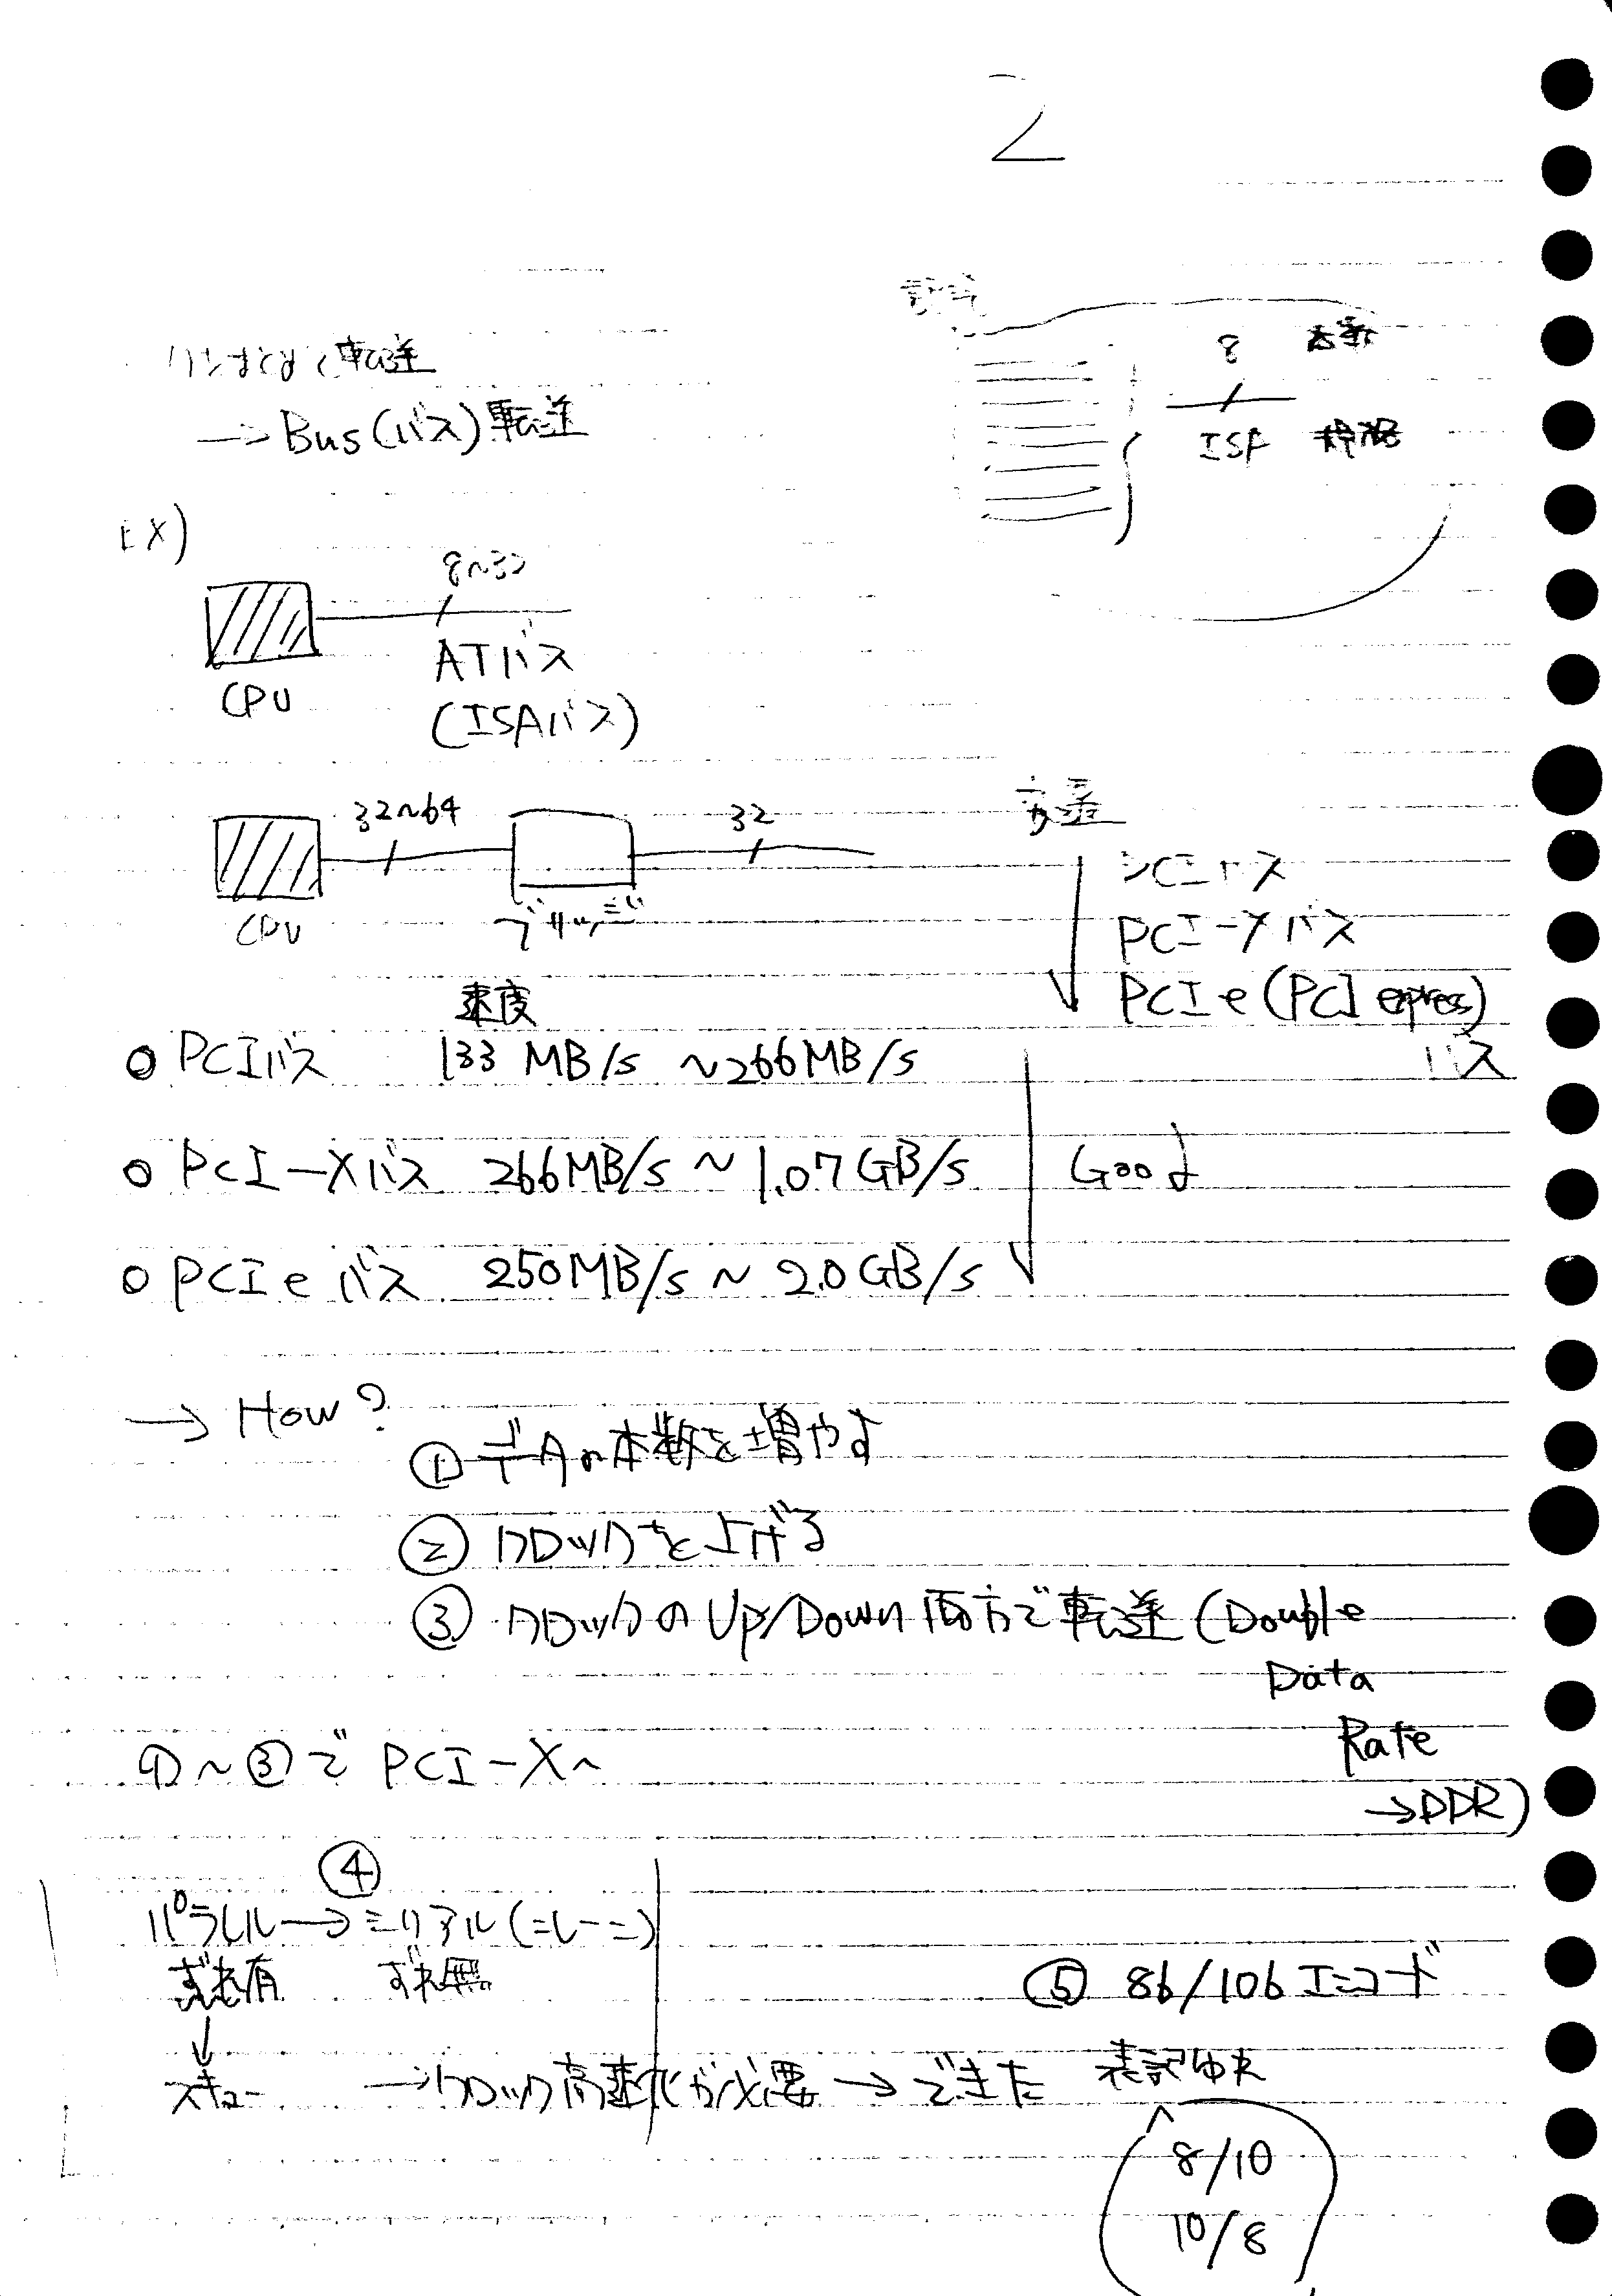 2
転送
→Bus(バス)転送
8
EX)
8~32
ATバス
CPU
(ISAバス)
32~64
32
高速
CPU
ブリッジ
PCIバス
PCI-Xバス
PCIe(PCI express)
バス
速度
○ PCIバス 133 MB/s ~266MB/s
○ PCI-Xバス 266MB/s ~ 1.07GB/s
Good
○ PCIeバス 250MB/s ~ 2.0GB/s
→ How?
① データの本数を増やす
② クロックを上げる
③ クロックのUp/Down両方で転送(Double
Data
Rate
→DDR)
①~③で PCI-Xへ
④
パラレル→シリアル(=レーン)
ずれ有 ずれ無
↓
スキュー →クロック高速化が必要→できた
⑤ 8b/10bエンコード
表記ゆれ
8/10
10/8